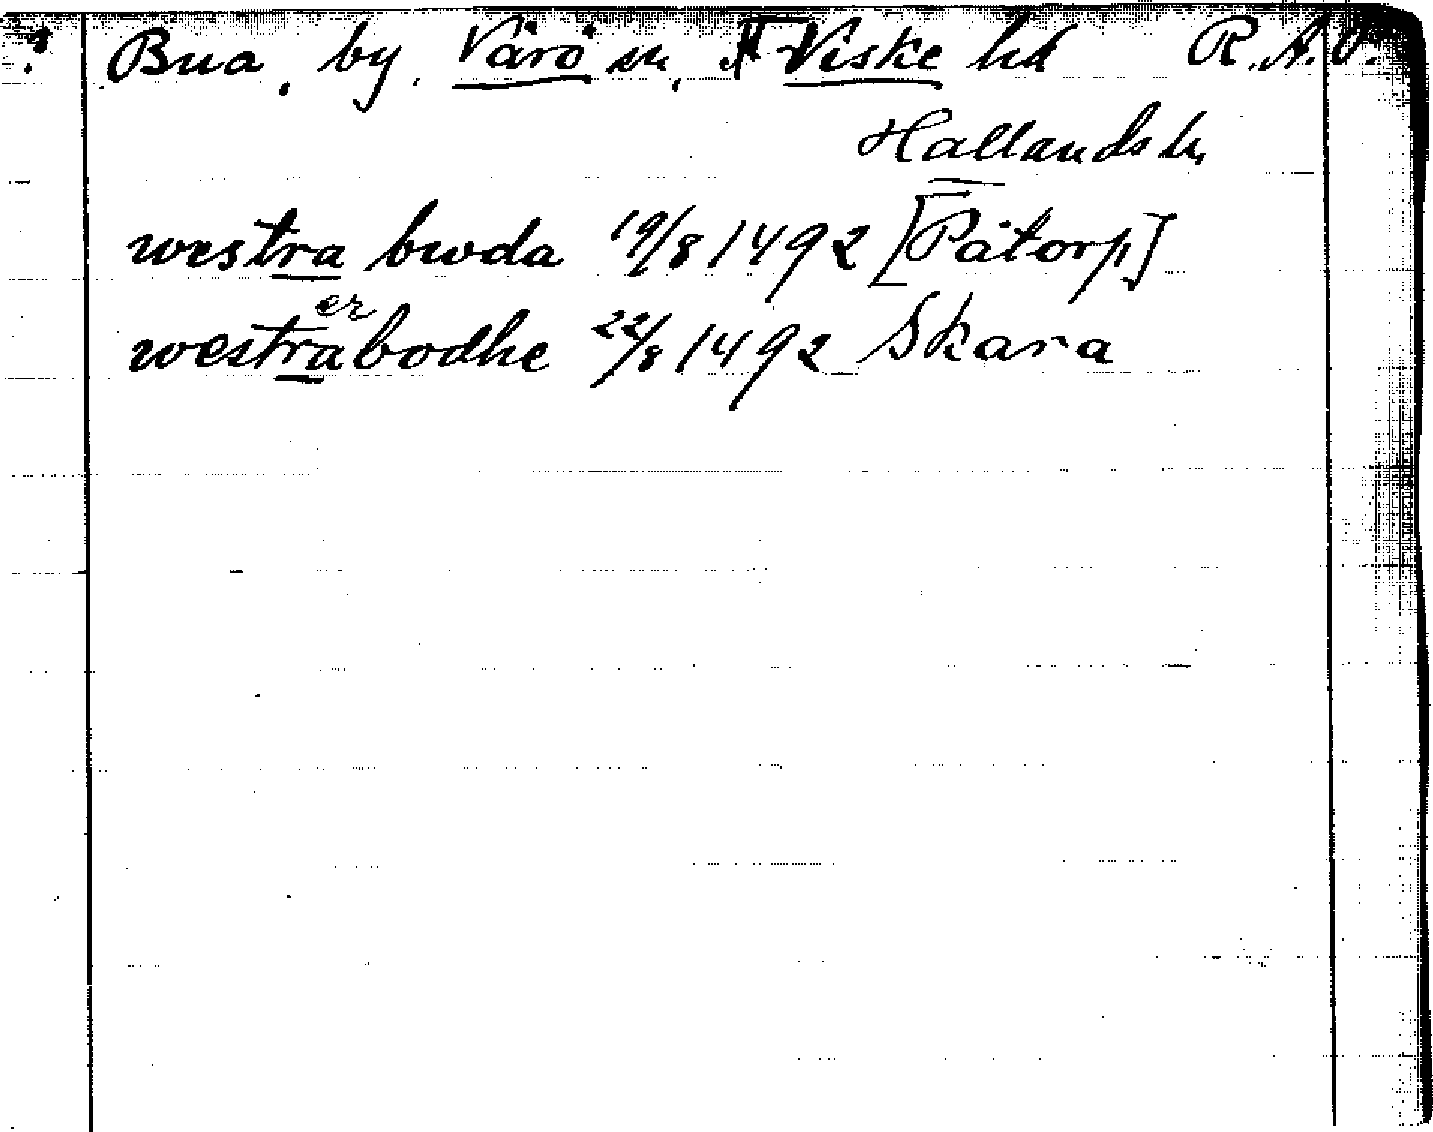 ? Bua, by, Värö sn, Viske hd R.A.P.
Hallands l.
westra bwda 19/8 1492 [Påtorp]
er
westrabodhe 22/8 1492 Skara